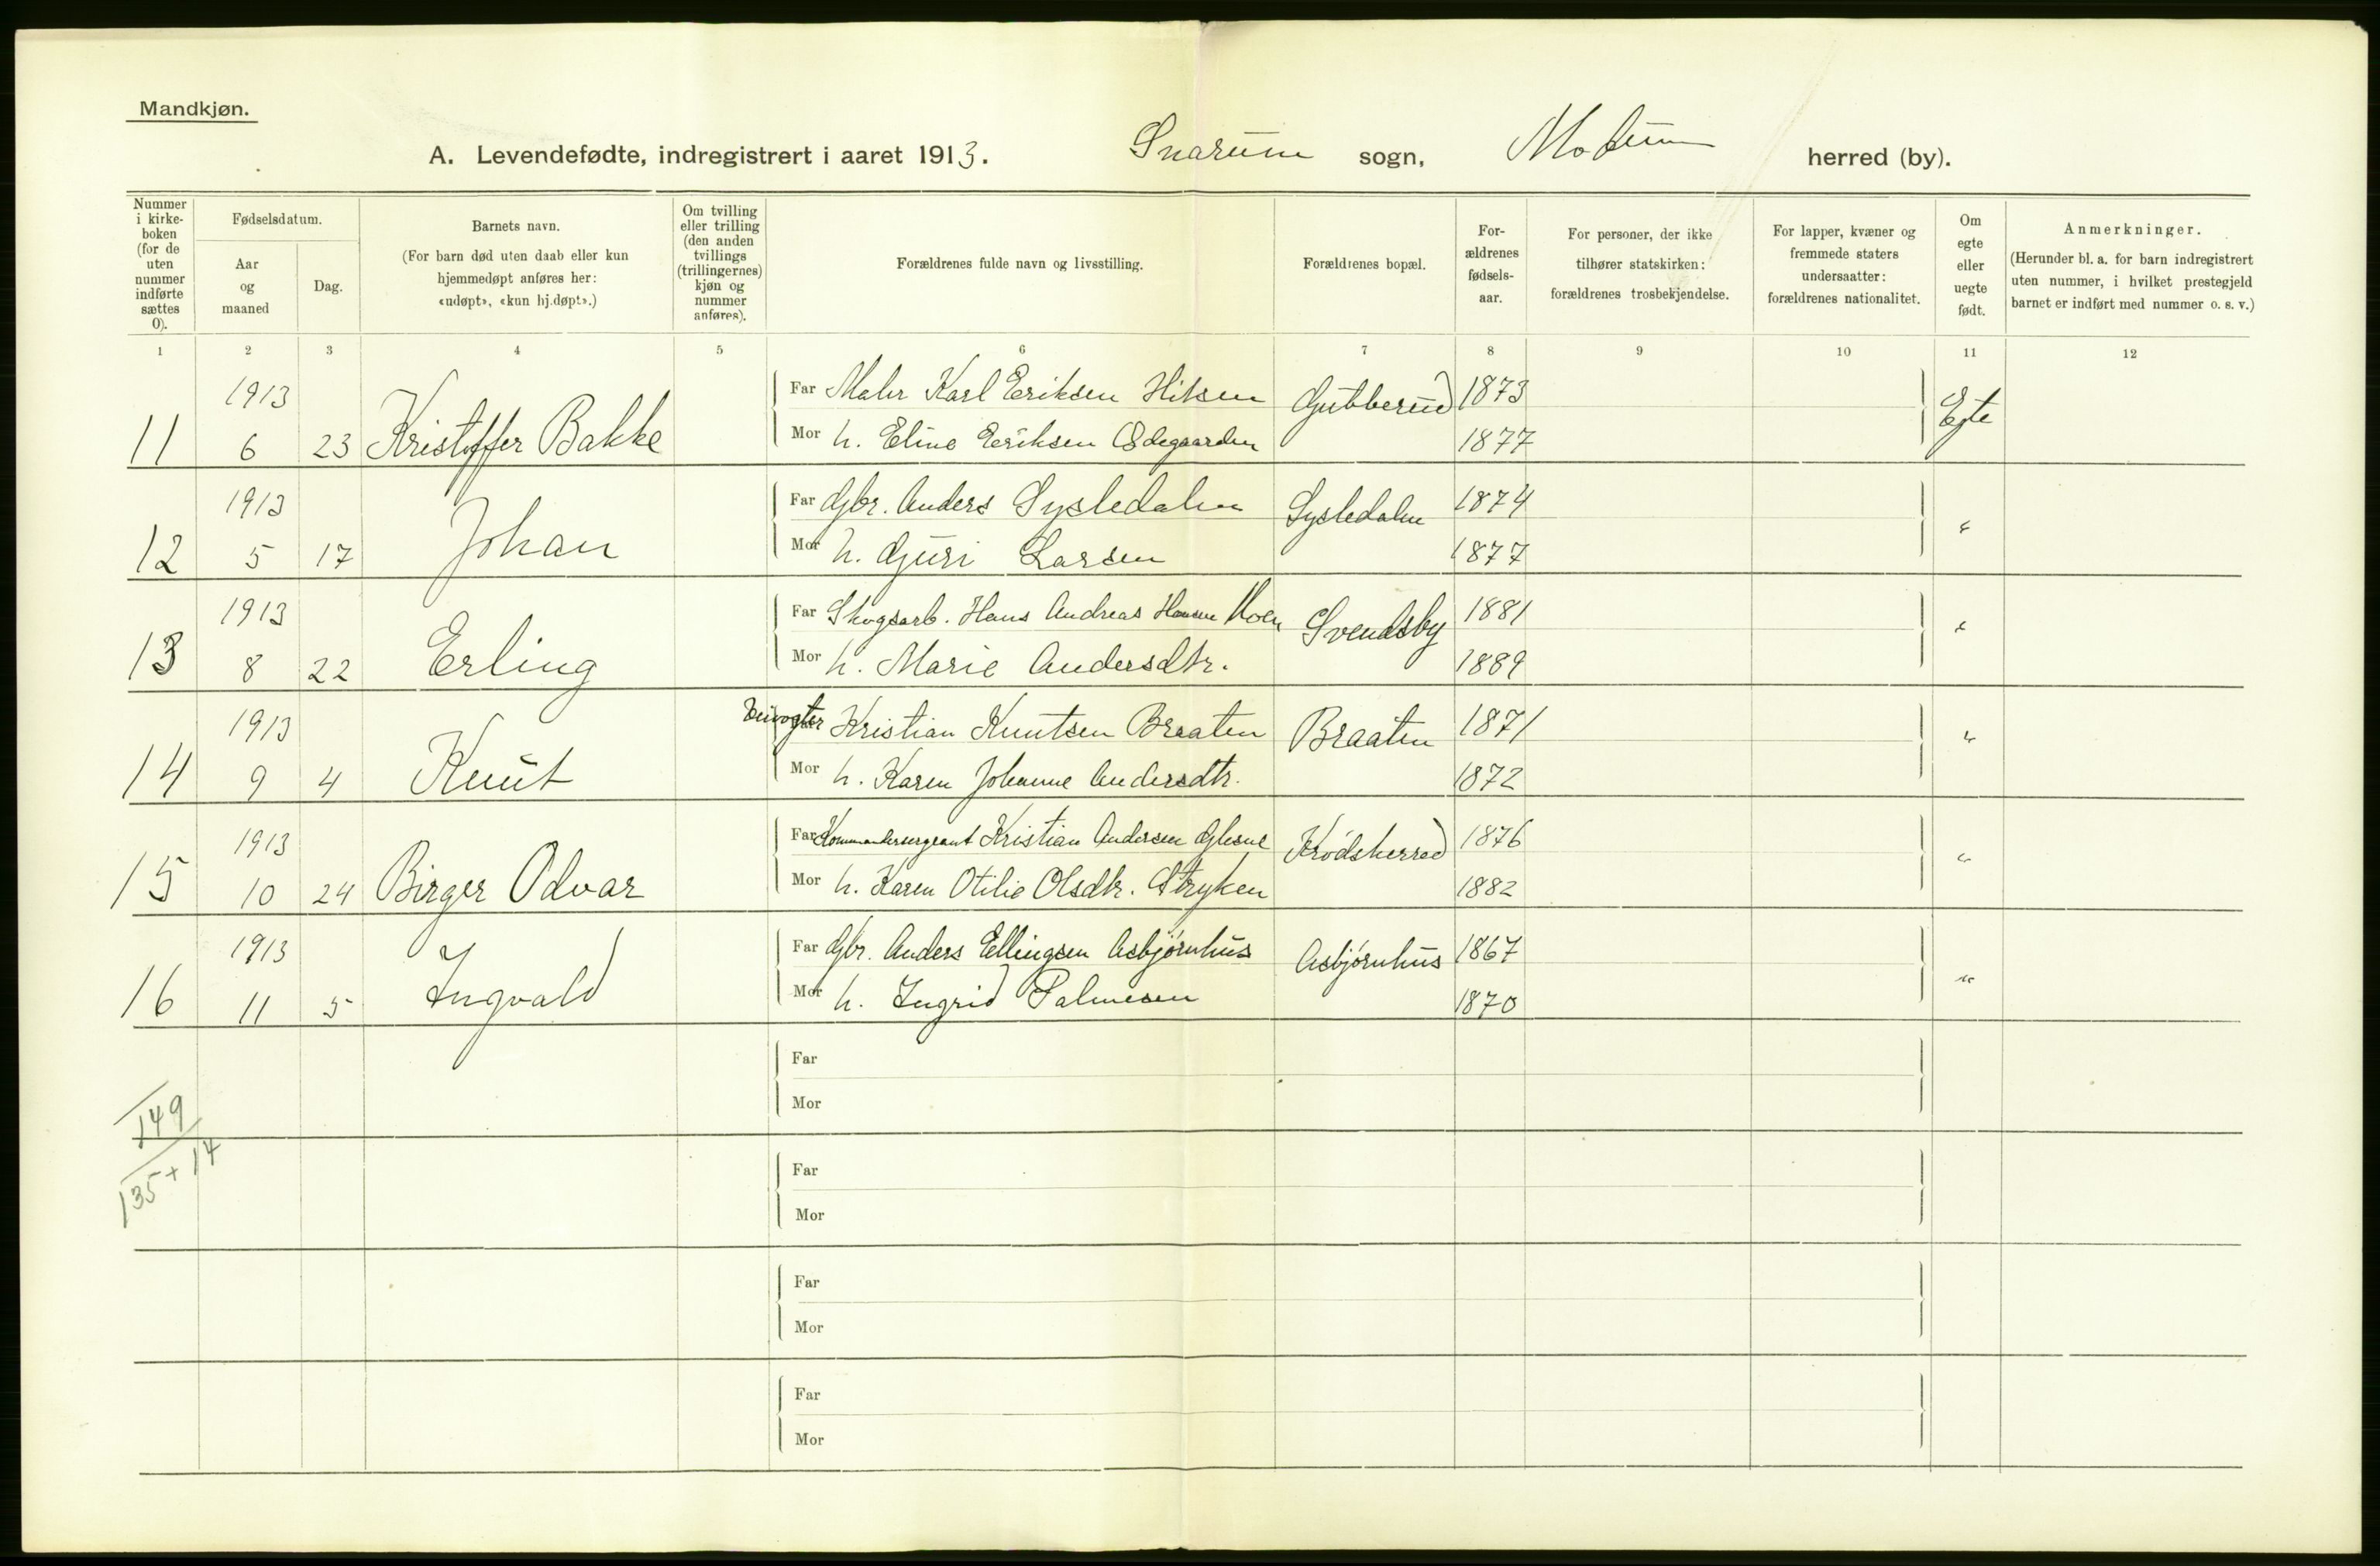 Mandkjøn.
A. Levendefødte, indregistrert i aaret 1913. Snarum sogn, Modum herred (by).
Nummer i kirke-boken (for de uten nummer indførte sættes 0).
Fødselsdatum.
Aar og maaned
Dag.
Barnets navn.
(For barn død uten daab eller kun hjemmedøpt anføres her: «udøpt», «kun hj.døpt».)
Om tvilling eller trilling (den anden tvillings (trillingernes) kjøn og nummer anføres).
Forældrenes fulde navn og livsstilling.
Forældrenes bopæl.
For-ældrenes fødsels-aar.
For personer, der ikke tilhører statskirken: forældrenes trosbekjendelse.
For lapper, kvæner og fremmede staters undersaatter: forældrenes nationalitet.
Om egte eller uegte født.
Anmerkninger.
(Herunder bl. a. for barn indregistrert uten nummer, i hvilket prestegjeld barnet er indført med nummer o. s. v.)
1 2 3 4 5 6 7 8 9 10 11 12
1913 Far Maler Karl Eriksen Hilsen Gubberud 1873 Egte
11 6 23 Kristoffer Bakke Mor h. Eline Eriksen Ødegaarden 1877
1913 Far Gbr. Anders Sysledalen Sysledalen 1874 "
12 5 17 Johan Mor h. Guri Larsen 1877
1913 Far Skogsarb. Hans Andreas Hansen Moen Svendsby 1881 "
13 8 22 Erling Mor h. Marie Andersdtr. 1889
1913 Veivogter Kristian Knutsen Braaten Braaten 1871 "
14 9 4 Knut Mor h. Karen Johanne Andersdtr. 1872
1913 Far Kommandersergeant Kristian Andersen Glesne Krødsherred 1876 "
15 10 24 Birger Odvar Mor h. Karen Otilie Olsdtr. Stryken 1882
1913 Far Gbr. Anders Ellingsen Asbjørnhus Asbjørnhus 1867 "
16 11 5 Ingvald Mor h. Ingrid Palmesen 1870
Far
Mor
149
135 + 14
Far
Mor
Far
Mor
Far
Mor